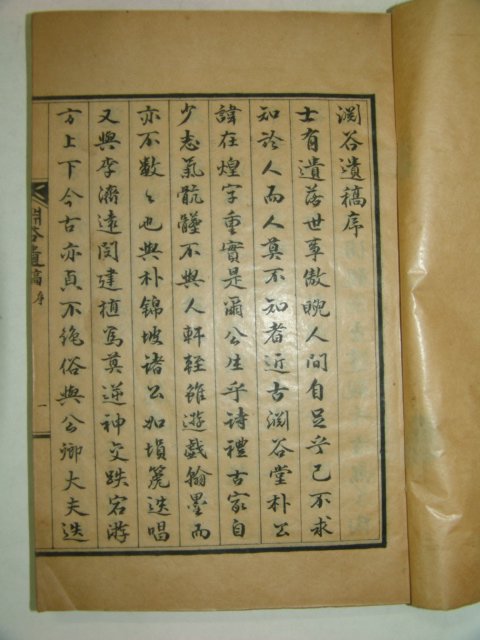 淵谷遺稿序
士有遺落世事傲睨人間自足乎己不求
知於人而人莫不知者近古淵谷堂朴公
諱在煌字重實是爾公生乎詩禮古家自
少志氣骯髒不與人軒輊雖遊戲翰墨而
亦不數〻也與朴錦坡諸公如塤篪迭唱
又與李濟遠閔建植爲莫逆神交跌宕游
方上下今古亦貞不絶俗與公卿大夫迭
淵谷遺稿序
一